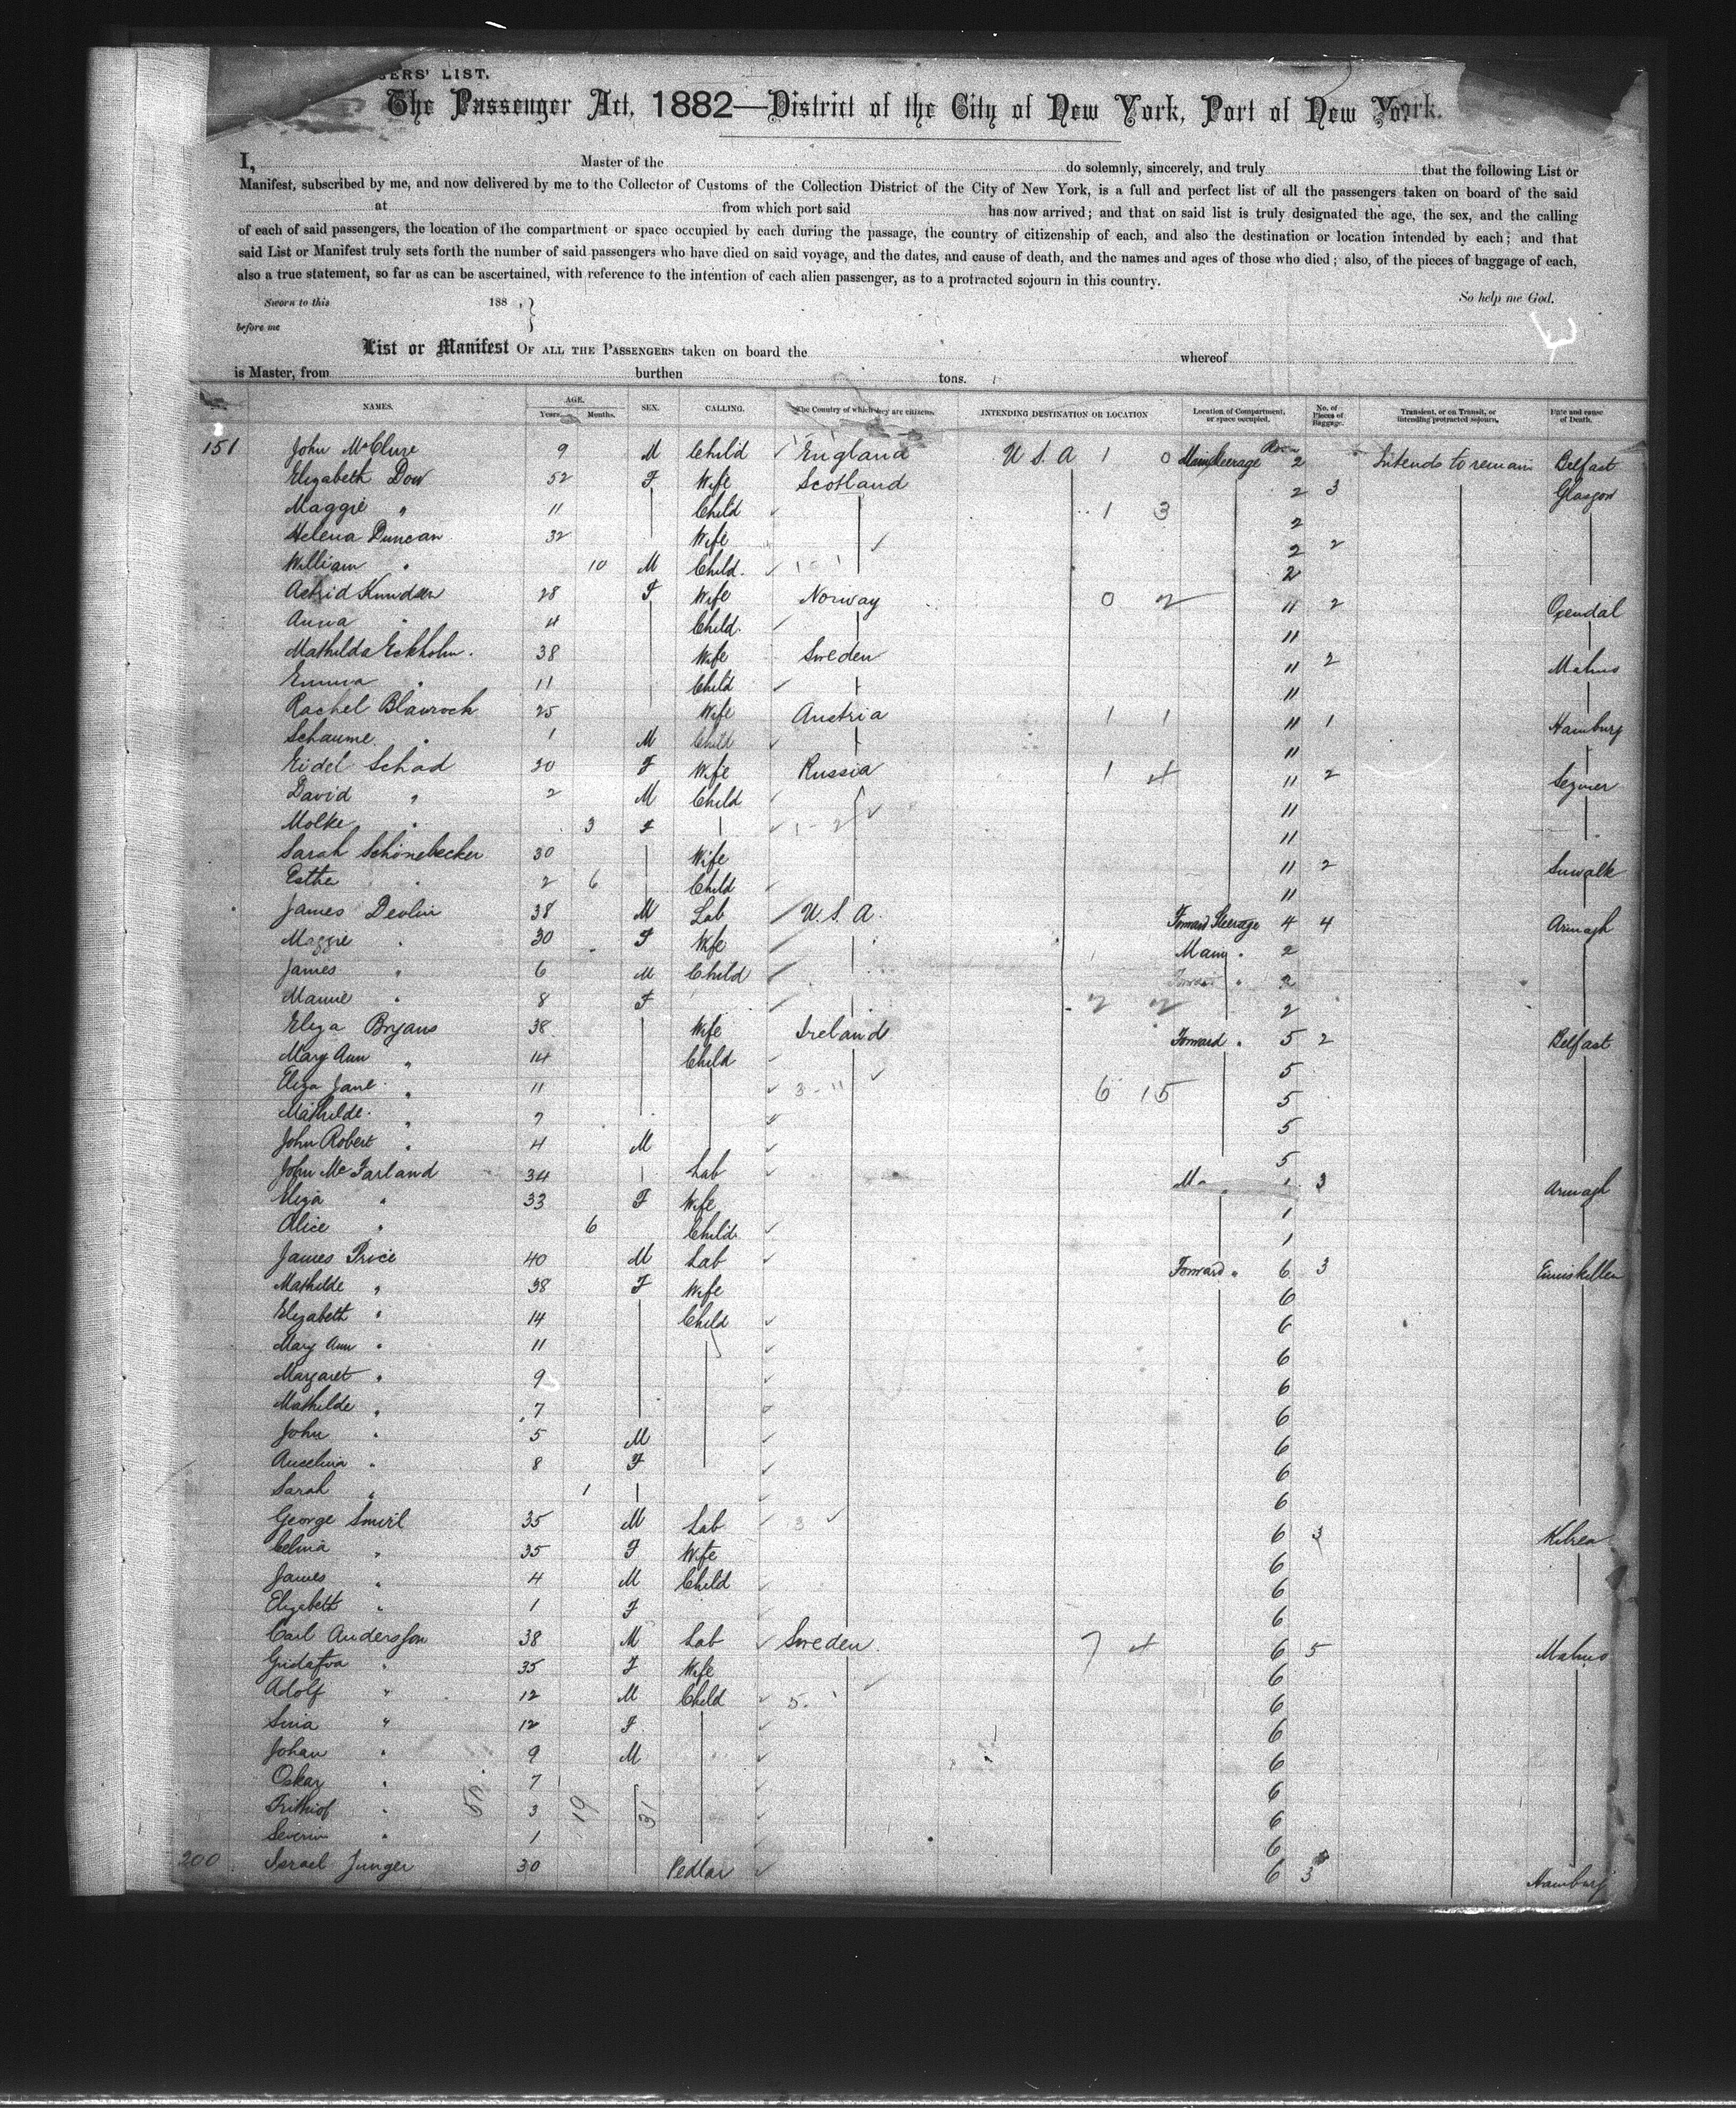 GERS' LIST.
The Passenger Act, 1882—District of the City of New York, Port of New York.
I, Master of the do solemnly, sincerely, and truly that the following List or
Manifest, subscribed by me, and now delivered by me to the Collector of Customs of the Collection District of the City of New York, is a full and perfect list of all the passengers taken on board of the said
at from which port said has now arrived; and that on said list is truly designated the age, the sex, and the calling
of each of said passengers, the location of the compartment or space occupied by each during the passage, the country of citizenship of each, and also the destination or location intended by each; and that
said List or Manifest truly sets forth the number of said passengers who have died on said voyage, and the dates, and cause of death, and the names and ages of those who died; also, of the pieces of baggage of each,
also a true statement, so far as can be ascertained, with reference to the intention of each alien passenger, as to a protracted sojourn in this country.
Sworn to this 188 , } So help me God.
before me
List or Manifest OF ALL THE PASSENGERS taken on board the whereof
is Master, from burthen tons.
NAMES. AGE. Years. Months. SEX. CALLING. The Country of which they are citizens. INTENDING DESTINATION OR LOCATION Location of Compartment, or space occupied. No. of Pieces of Baggage. Transient, or on Transit, or intending protracted sojourn. Date and cause of Death.
151 John McClure 9 M Child England U.S.A 1 0 Main Steerage 2 Intends to remain Belfast
Elizabeth Dow 52 F Wife Scotland 2 3 Glasgow
Maggie " 11 Child 1 3 2
Helena Duncan 32 Wife 2 2
William " 10 M Child 2
Astrid Knudsen 28 F Wife Norway 0 2 11 2
Anna " 4 Child 11
Mathilda Eckholm 38 Wife Sweden 11 2 Malmo
Emma " 11 Child 11
Rachel Blauroch 25 Wife Austria 1 1 11 1 Hamburg
Schaume " 1 M Child 11
Eidel Schad 20 F Wife Russia 1 4 11 2
David " 2 M Child 11
Molke " 3 F 11
Sarah Schönebecker 30 Wife 11 2 Suwalk
Esther " 2 6 Child 11
James Devlin 38 M Lab U.S.A. Forward Steerage 4 4 Armagh
Maggie " 30 F Wife Main " 2
James " 6 M Child 2
Mamie " 8 F 2 2 2
Eliza Bryans 38 Wife Ireland Forward " 5 2 Belfast
Mary Ann " 14 Child 5
Eliza Jane " 11 6 15 5
Mathilde " 7 5
John Robert " 4 M 5
John McFarland 34 Lab 1 3 Armagh
Eliza " 33 F Wife 1
Alice " 6 Child 1
James Price 40 M Lab Forward " 6 3 Enniskillen
Mathilde " 38 F Wife 6
Elizabeth " 14 Child 6
Mary Ann " 11 6
Margaret " 9 6
Mathilde " 7 6
John " 5 M 6
Ancelina " 8 F 6
Sarah " 1 6
George Smirl 35 M Lab 6 3 Kilrea
Celina " 35 F Wife 6
James " 4 M Child 6
Elizabeth " 1 F 6
Carl Andersson 38 M Lab Sweden 7 4 6 5 Malmo
" 35 F Wife 6
Adolf " 12 M Child 6
Sina " 12 F 6
Johan " 9 M 6
Oskar " 7 6
Frithiof " 3 6
Severin " 1 6
200 Israel Junger 30 Pedlar 6 3 Hamburg
50 19 31